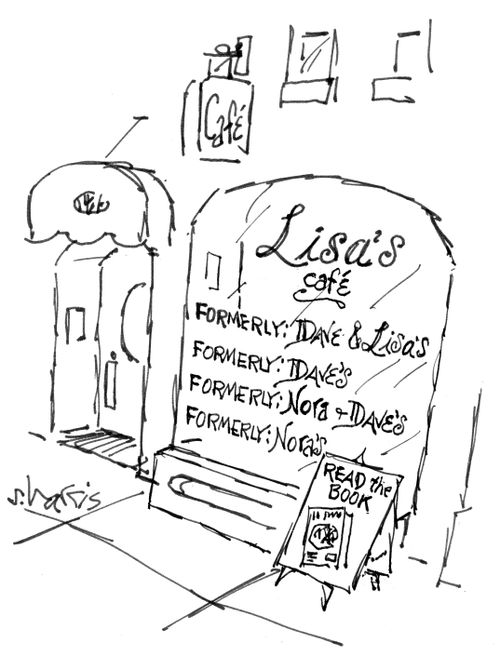 Café
Lisa's
café
FORMERLY: DAVE & Lisa's
FORMERLY: DAVE'S
FORMERLY: Nora + DAVE'S
FORMERLY: Nora's
READ the
BOOK
s.harris